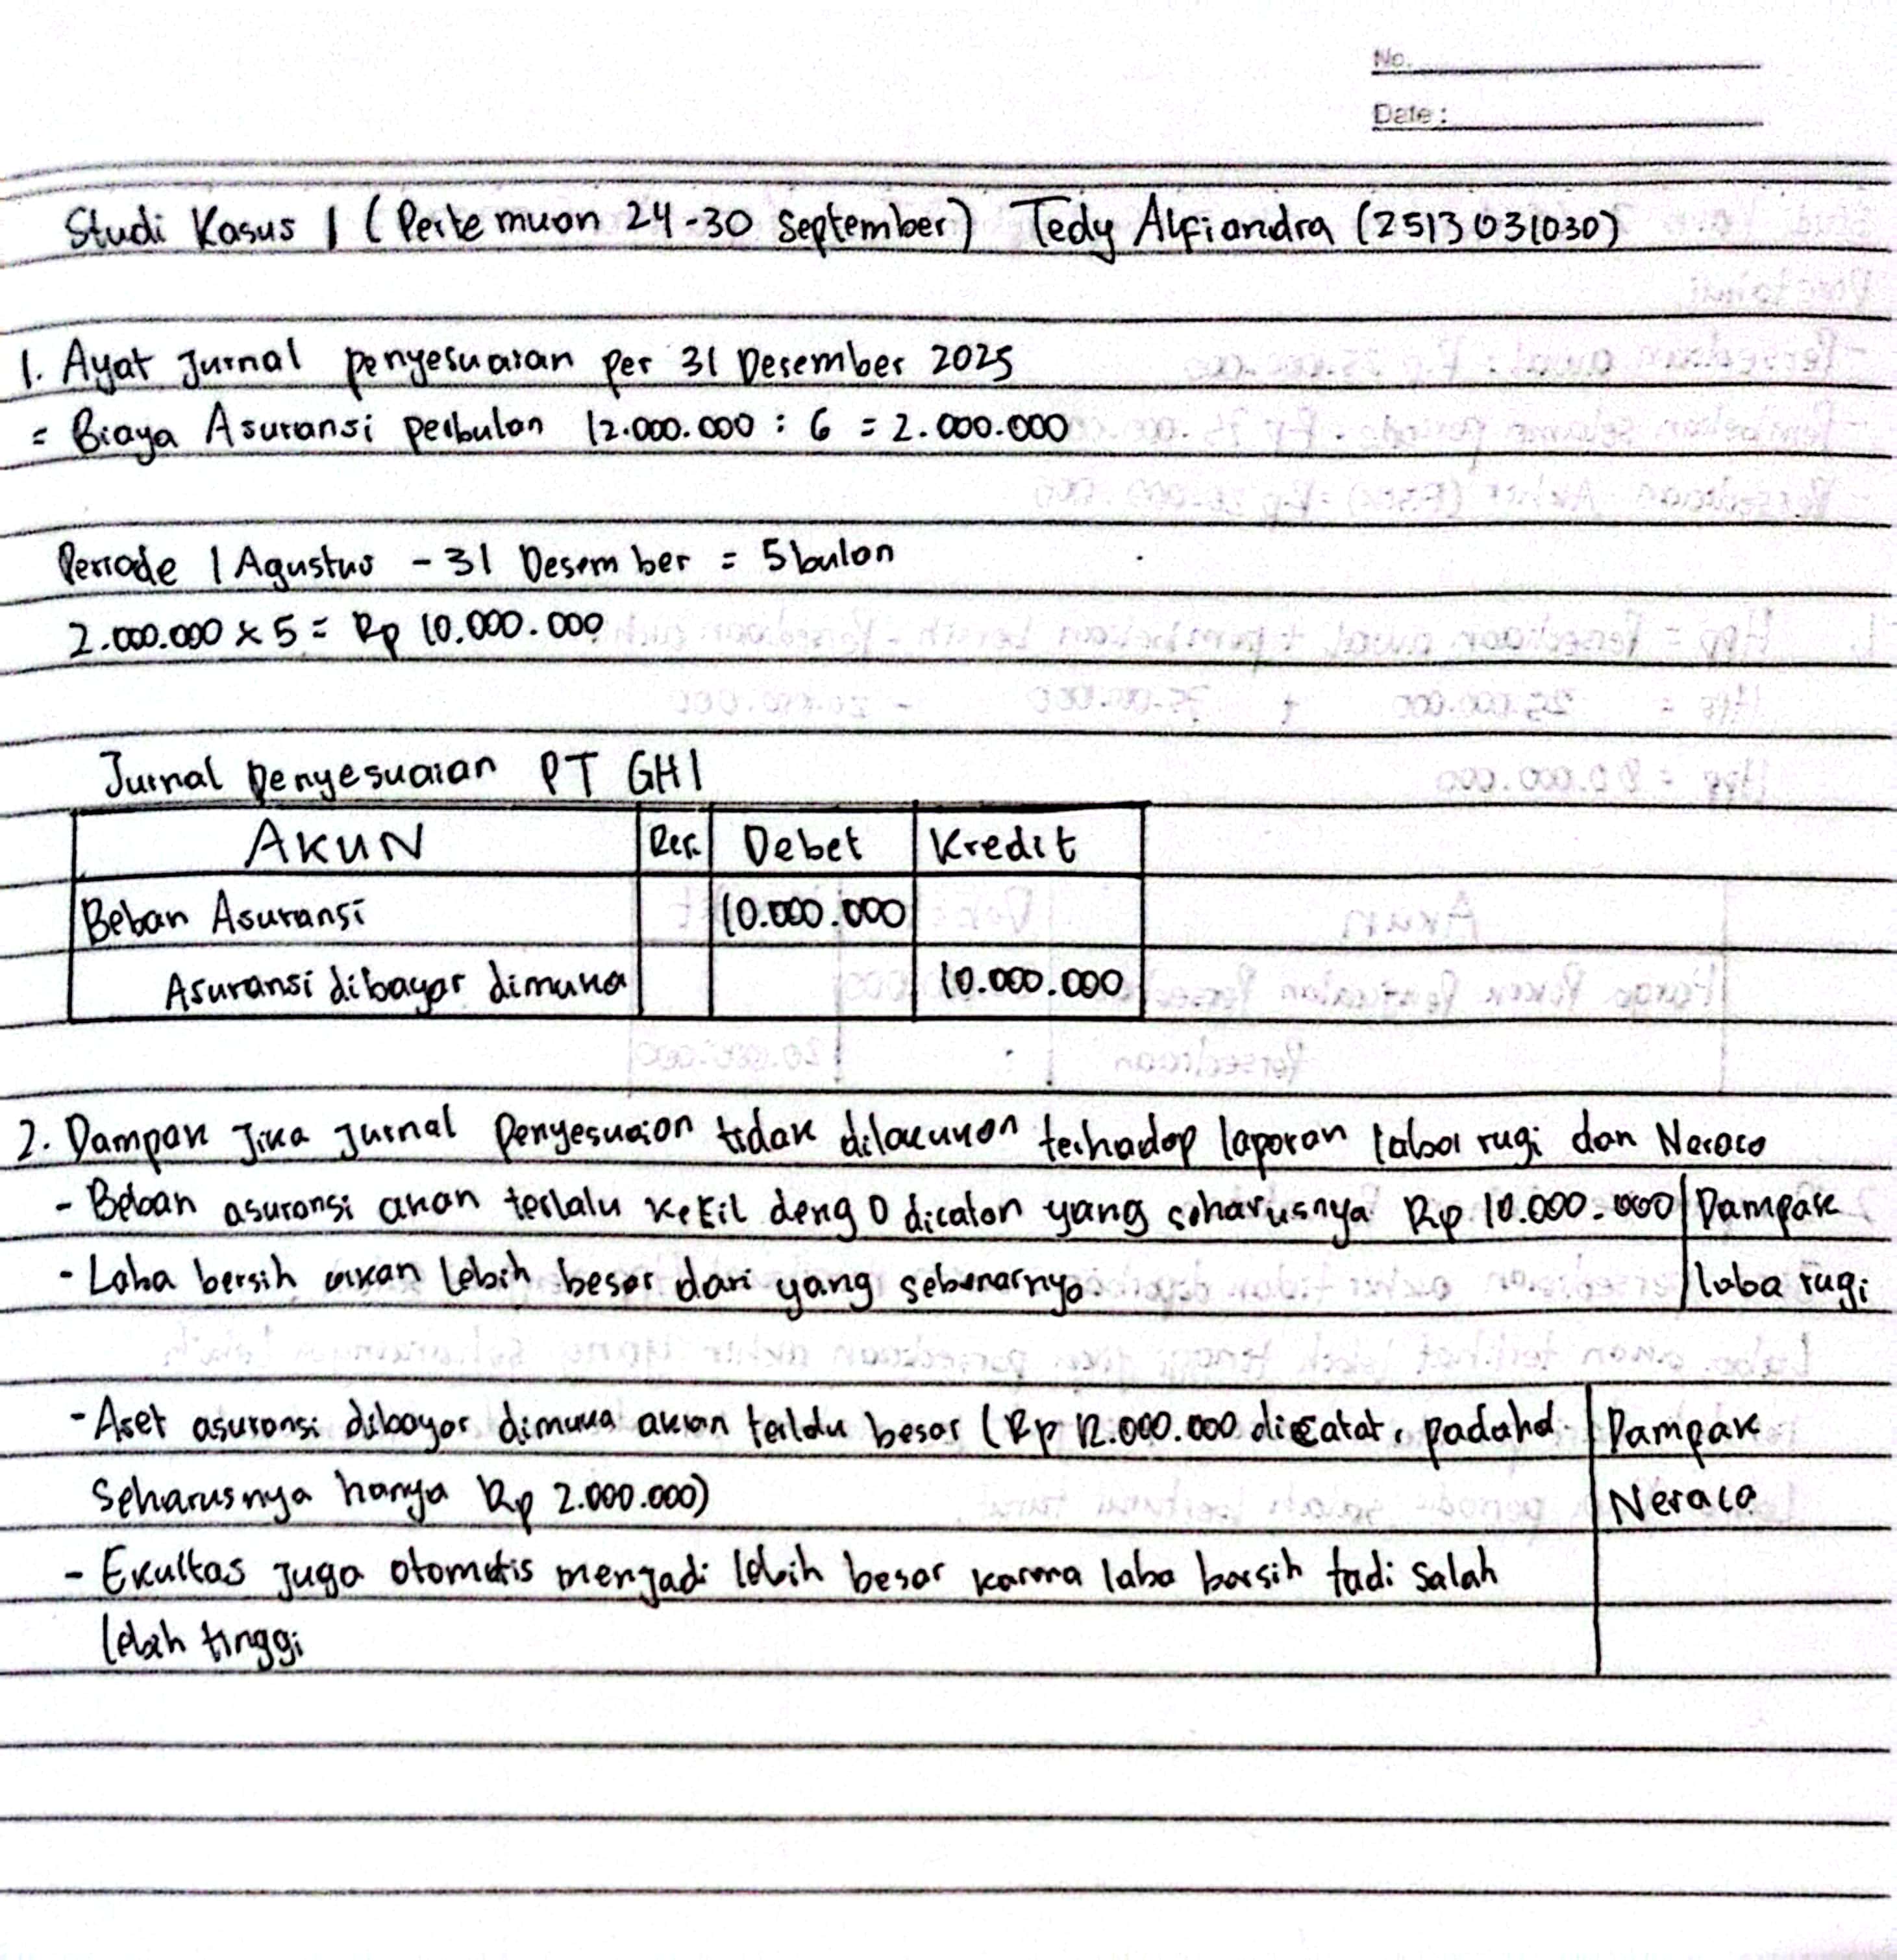 No.
Date:
Studi Kasus 1 (Pertemuan 24-30 September) Tedy Alfiandra (2513031030)
1. Ayat Jurnal penyesuaian per 31 Desember 2025
= Biaya Asuransi perbulan 12.000.000 : 6 = 2.000.000
Periode 1 Agustus - 31 Desember = 5 bulan
2.000.000 x 5 = Rp 10.000.000
Jurnal Penyesuaian PT GHI
AKUN Ref. Debet Kredit
Beban Asuransi 10.000.000
Asuransi dibayar dimuka 10.000.000
2. Dampak Jika Jurnal Penyesuaian tidak dilakukan terhadap laporan laba rugi dan Neraca
- Beban asuransi akan terlalu kecil deng 0 dicatan yang seharusnya Rp 10.000.000 Dampak
- Laba bersih akan lebih besar dari yang sebenarnya laba rugi
- Aset asuransi dibayar dimuka akan terlalu besar (Rp 12.000.000 dicatat, padahal Dampak
Seharusnya hanya Rp 2.000.000) Neraca
- Ekuitas Juga otomatis menjadi lebih besar karena laba bersih tadi salah
lebih tinggi